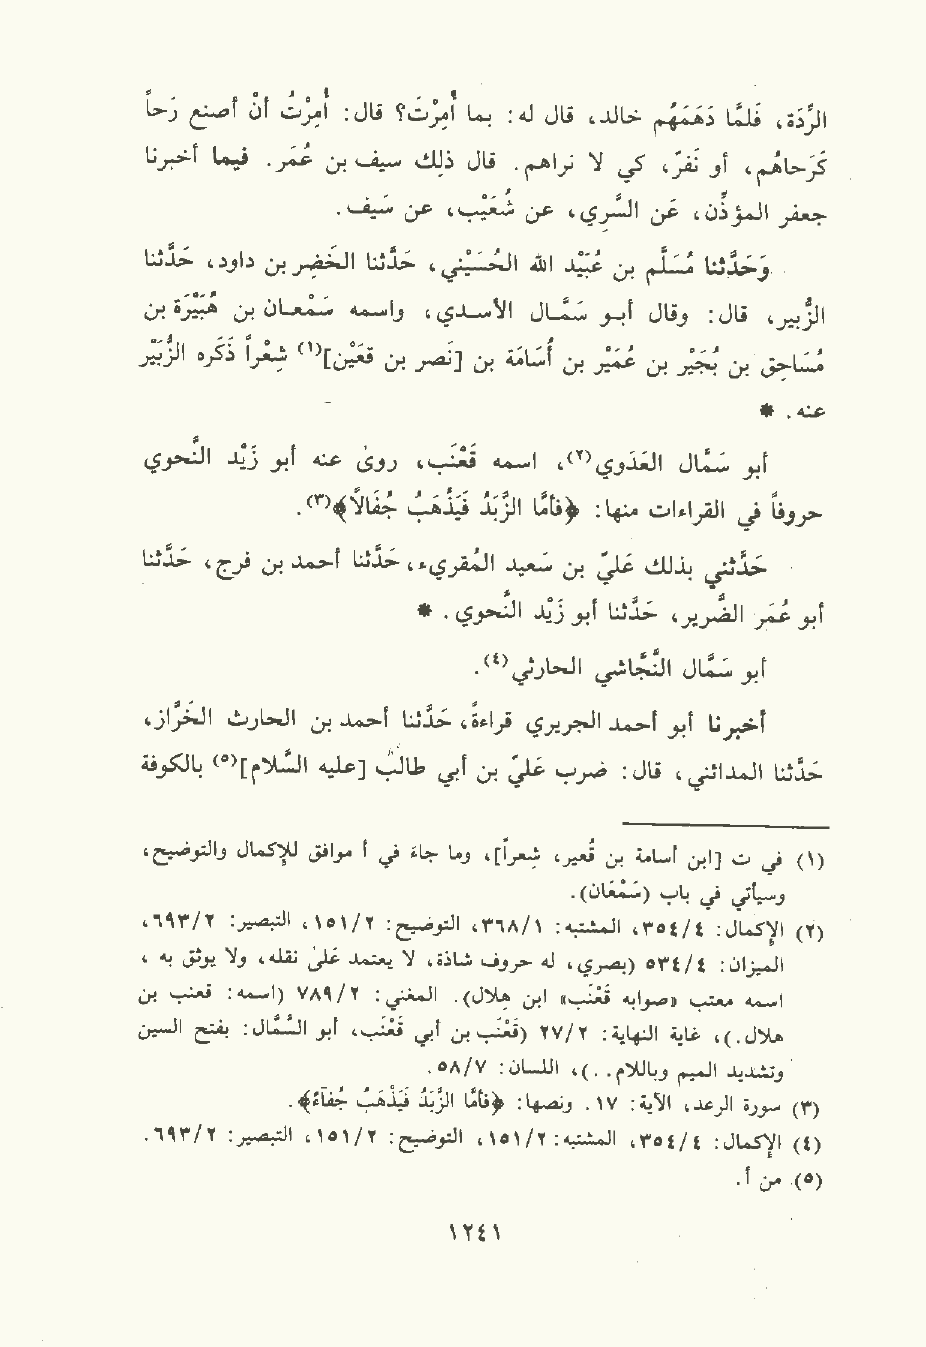 الرِّدَة، فَلمَّا دَهَمَهُم خالد، قال له: بما أُمِرْتَ؟ قال: أُمِرْتُ أنْ أصنع رَحاً
كَرَحاهُم، أو نَفِرّ، كي لا نراهم. قال ذلك سيف بن عُمَر. فيما أخبرنا
جعفر المؤذِّن، عَن السَّرِي، عن شُعَيْب، عن سَيف.
وَحَدَّثنا مُسَلَّم بن عُبَيْد الله الحُسَيْني، حَدَّثنا الخَضِر بن داود، حَدَّثنا
الزُّبير، قال: وقال أبو سَمَّال الأسدي، واسمه سَمْعان بن هُبَيْرَة بن
مُسَاحِق بن بُجَيْر بن عُمَيْر بن أُسَامَة بن [نَصر بن قُعَيْن](١) شِعْراً ذَكَره الزُّبَيْر
عنه. *
أبو سَمَّال العَدَوي(٢)، اسمه قَعْنَب، روىٰ عنه أبو زَيْد النَّحوي
حروفاً في القراءات منها: ﴿فأمَّا الزَّبَدُ فَيَذْهَبُ جُفَالاً﴾(٣).
حَدَّثني بذلك عَليّ بن سَعيد المُقرىء، حَدَّثنا أحمد بن فرج، حَدَّثنا
أبو عُمَر الضَّرير، حَدَّثنا أبو زَيْد النَّحوي. *
أبو سَمَّال النَّجَاشي الحارثي(٤).
أخبرنا أبو أحمد الجريري قراءةً، حَدَّثنا أحمد بن الحارث الخَرَّاز،
حَدَّثنا المدائني، قال: ضرب عَليّ بن أبي طالب [عليه السَّلام](٥) بالكوفة
(١) في ت [ابن أسامة بن قُعير، شِعراً]، وما جاء في أ موافق للإكمال والتوضيح،
وسيأتي في باب (سَمْعَان).
(٢) الإكمال: ٣٥٤/٤، المشتبه: ٣٦٨/١، التوضيح: ١٥١/٢، التبصير: ٦٩٣/٢،
الميزان: ٥٣٤/٤ (بصري، له حروف شاذة، لا يعتمد عَلىٰ نقله، ولا يوثق به،
اسمه معتب «صوابه قَعْنَب» ابن هلال). المغني: ٧٨٩/٢ (اسمه: قعنب بن
هلال.)، غاية النهاية: ٢٧/٢ (قَعْنَب بن أبي قَعْنَب، أبو السَّمَّال: بفتح السين
وتشديد الميم وباللام. .)، اللسان: ٥٨/٧.
(٣) سورة الرعد، الآية: ١٧. ونصها: ﴿فأمَّا الزَّبَدُ فَيَذْهَبُ جُفآءً﴾.
(٤) الإكمال: ٣٥٤/٤، المشتبه: ١٥١/٢، التوضيح: ١٥١/٢، التبصير: ٦٩٣/٢.
(٥) من أ.
١٢٤١